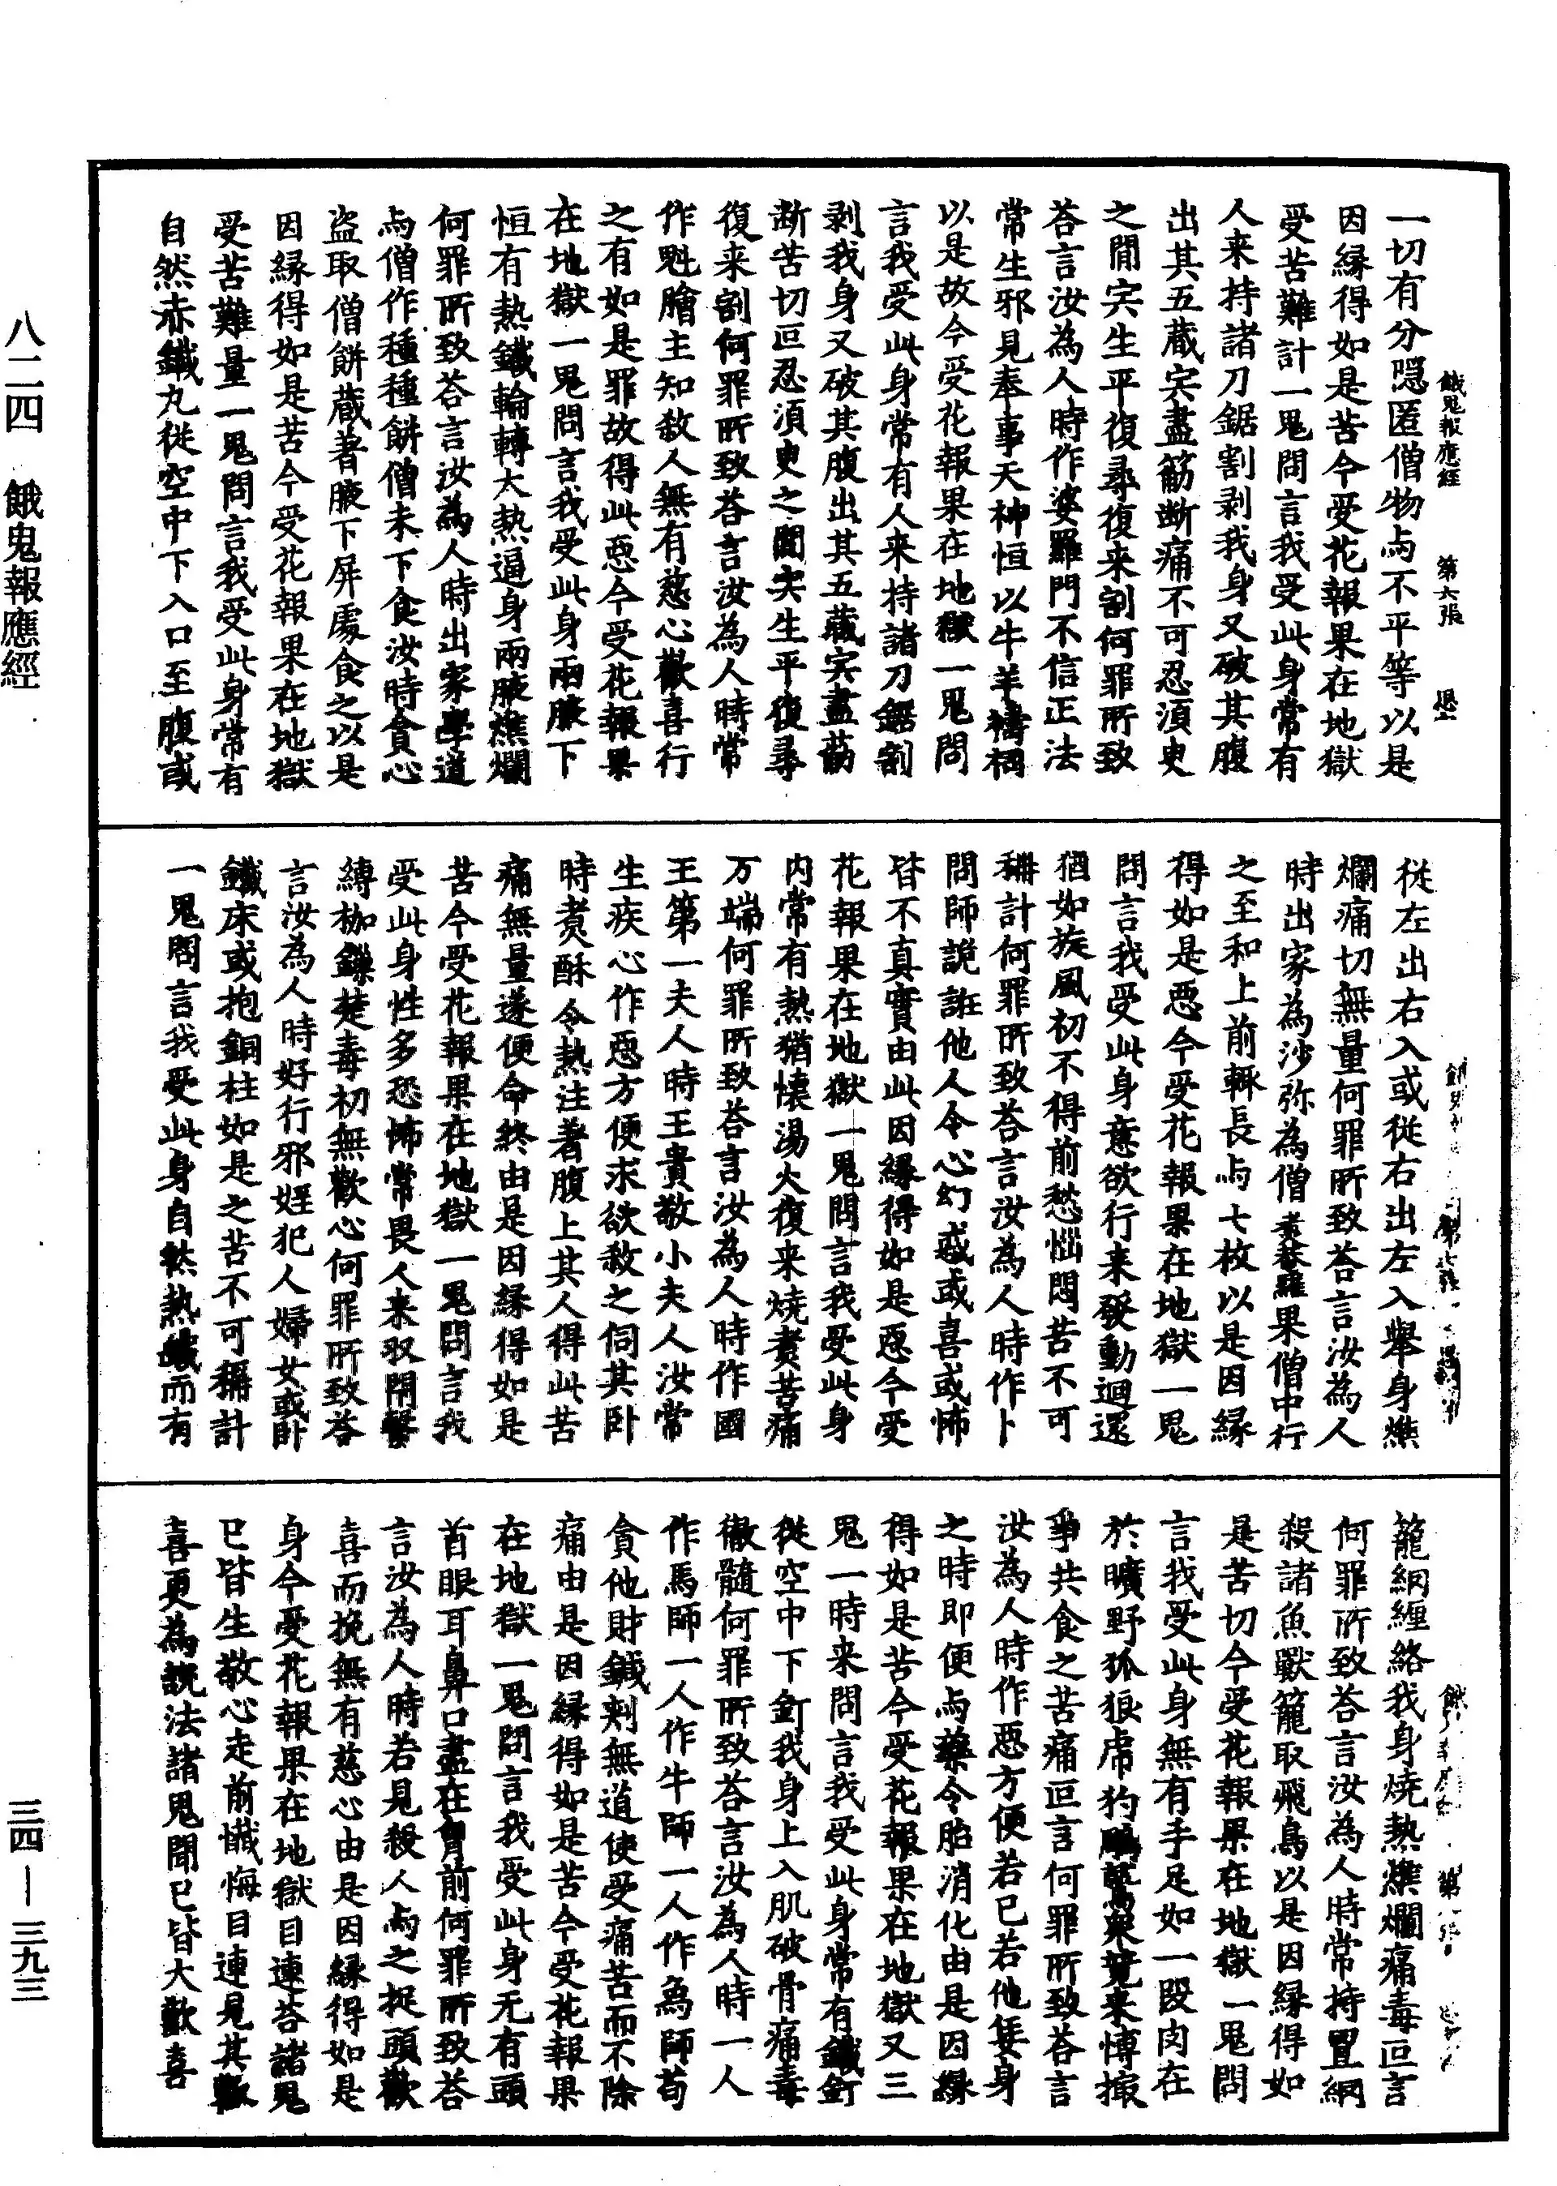 餓鬼報應經　第六張　思
一切有分隠匿僧物与不平等以是
因緣得如是苦今受花報果在地獄
受苦難計一鬼問言我受此身常有
人来持諸刀鋸割剥我身又破其腹
出其五蔵宍盡筋断痛不可忍湏史
之閒宍生平復尋復来割何罪所致
荅言汝為人時作婆羅門不信正法
常生邪見奉事天神恒以牛羊禱祠
以是故今受花報果在地獄一鬼問
言我受此身常有人来持諸刀鋸割
剥我身又破其腹出其五蔵宍盡筋
断苦切叵忍湏史之閒宍生平復尋
復来割何罪所致荅言汝為人時常
作魁膾主知煞人無有慈心歡喜行
之有如是罪故得此惡今受花報果
在地獄一鬼問言我受此身兩腋下
恒有熱鐵輪轉大熱逼身兩腋燋爛
何罪所致荅言汝為人時出家學道
与僧作種種餅僧未下食汝時貪心
盗取僧餅蔵著腋下屏處食之以是
因緣得如是苦今受花報果在地獄
受苦難量一鬼問言我受此身常有
自然赤鐵丸従空中下入口至腹或
従左出右入或従右出左入舉身燋
爛痛切無量何罪所致荅言汝為人
時出家為沙弥為僧菴羅果僧中行
之至和上前輙長与七枚以是因緣
得如是惡今受花報果在地獄一鬼
問言我受此身意欲行来發動迴還
猶如旋風初不得前愁惱悶苦不可
稱計何罪所致荅言汝為人時作卜
問師詭誑他人令心幻惑或喜或怖
皆不真實由此因緣得如是惡今受
花報果在地獄一鬼問言我受此身
内常有熱猶懐湯火復来燒煑苦痛
万端何罪所致荅言汝為人時作國
王第一夫人時王貴敬小夫人汝常
生疾心作惡方便求欲煞之伺其卧
時煑酥令熱注著腹上其人得此苦
痛無量遂便命終由是因緣得如是
苦今受花報果在地獄一鬼問言我
受此身性多恐怖常畏人来収閇繫
縛枷鏁楚毒初無歡心何罪所致荅
言汝為人時好行邪婬犯人婦女或卧
鐵床或抱銅柱如是之苦不可稱計
一鬼問言我受此身自然熱鐵而有
籠綱纏絡我身燒熱燋爛痛毒叵言
何罪所致荅言汝為人時常持罝綱
殺諸魚獸籠取飛鳥以是因緣得如
是苦切今受花報果在地獄一鬼問
言我受此身無有手足如一段肉在
於曠野狐狼虎狗鵰鷲来競来愽撮
爭共食之苦痛叵言何罪所致荅言
汝為人時作惡方便若已若他妊身
之時即便与藥令胎消化由是因緣
得如是苦今受花報果在地獄又三
鬼一時来問言我受此身常有鐵釘
従空中下釘我身上入肌破骨痛毒
徹髓何罪所致荅言汝為人時一人
作馬師一人作牛師一人作為師苟
貪他財鍼刺無道使受痛苦而不除
痛由是因緣得如是苦今受花報果
在地獄一鬼問言我受此身无有頭
首眼耳鼻口盡在胷前何罪所致荅
言汝為人時若見殺人与之捉頭歡
喜而挽無有慈心由是因緣得如是
身今受花報果在地獄目連荅諸鬼
已皆生敬心走前懺悔目連見其歡
喜更為說法諸鬼聞已皆大歡喜
八二四　餓鬼報應經
三四—三九三